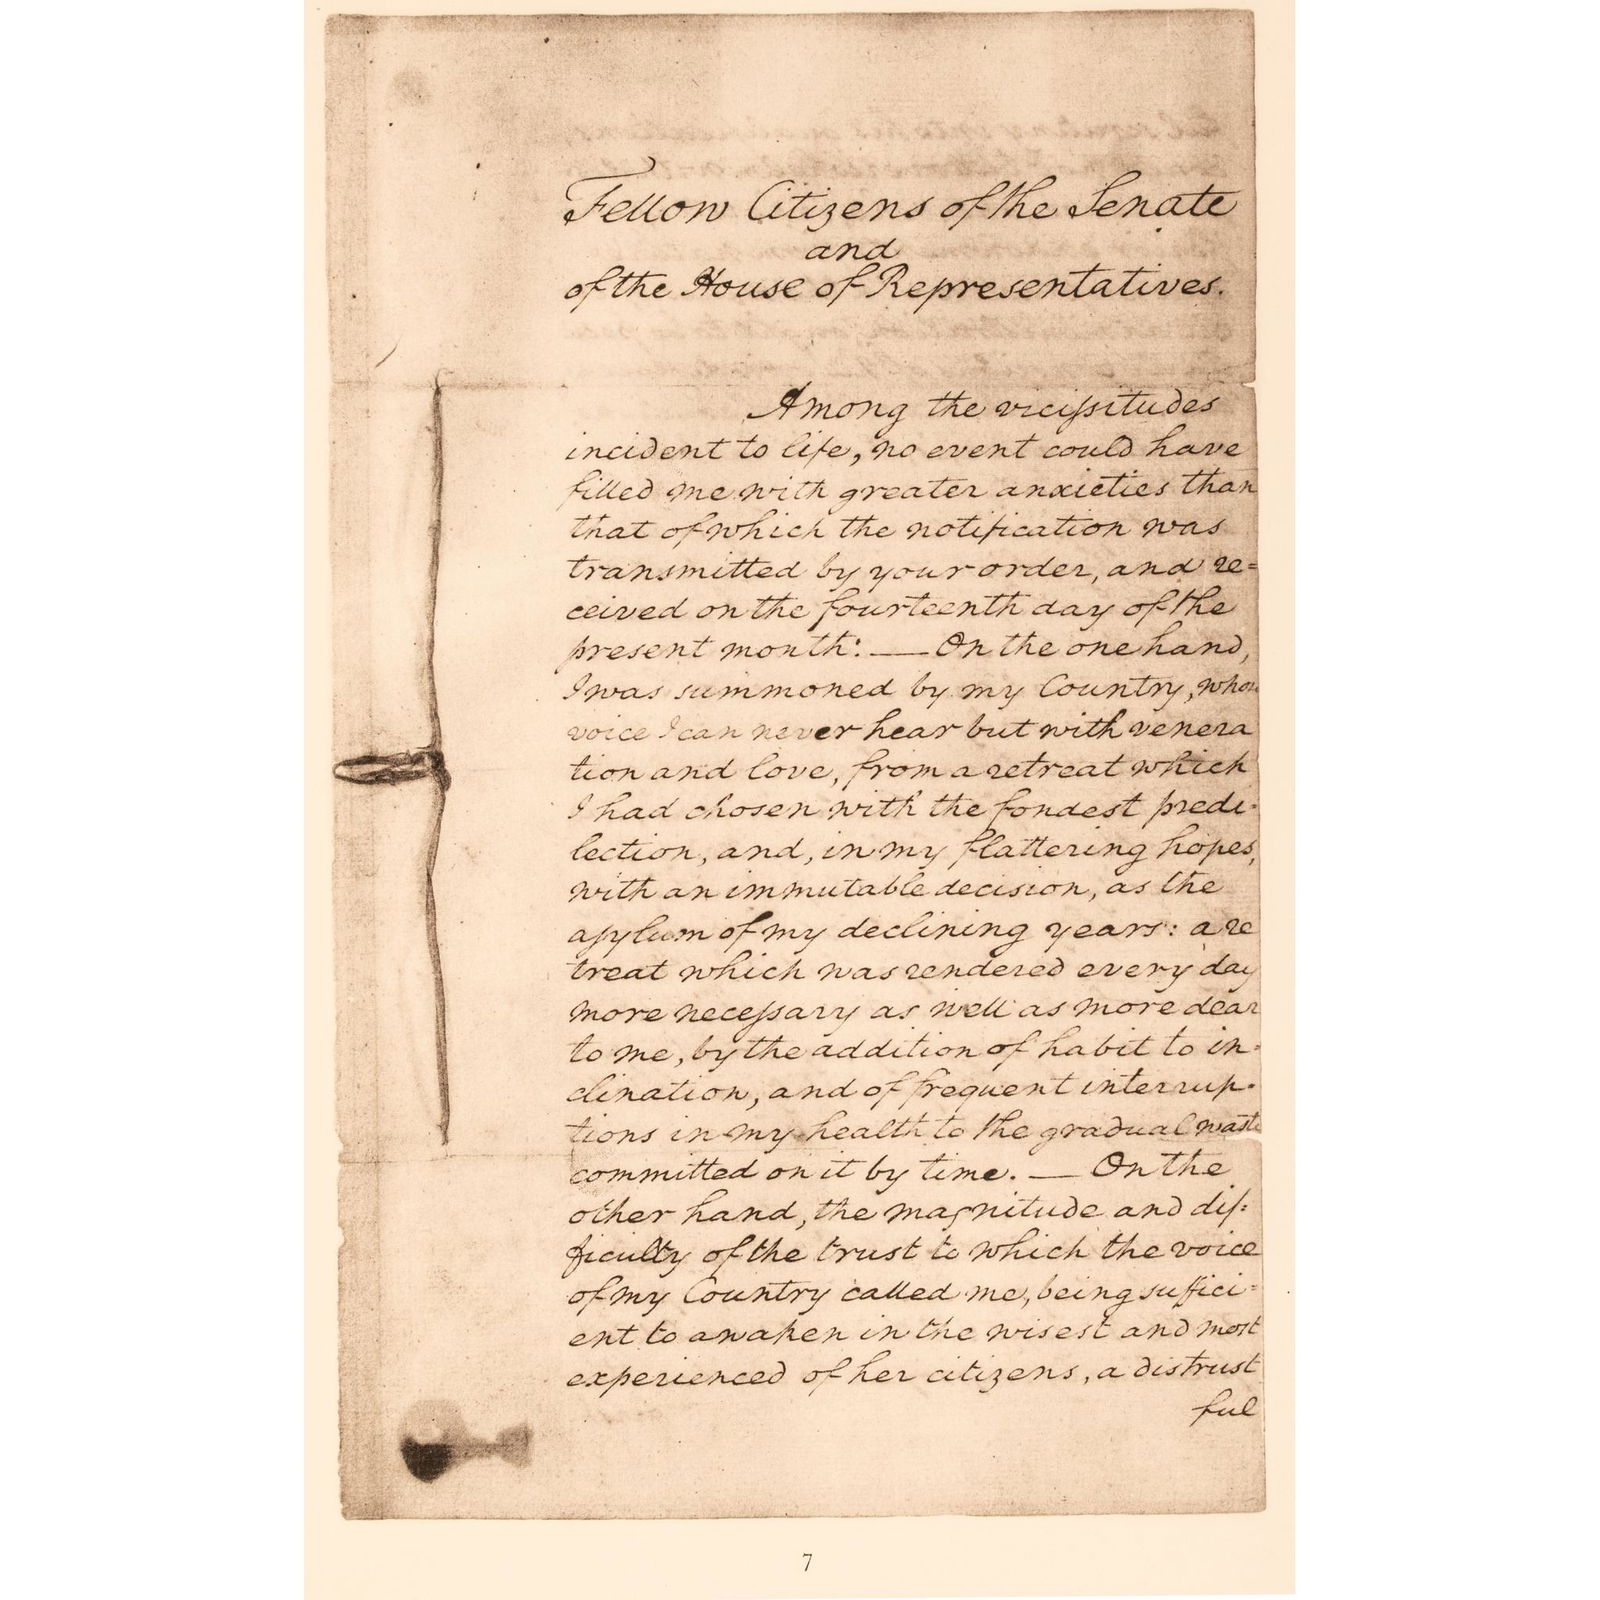 Fellow Citizens of the Senate
and
of the House of Representatives.
Among the vicissitudes
incident to life, no event could have
filled me with greater anxieties than
that of which the notification was
transmitted by your order, and re=
ceived on the fourteenth day of the
present month: — On the one hand,
I was summoned by my Country, whose
voice I can never hear but with venera
tion and love, from a retreat which
I had chosen with the fondest predi-
lection, and, in my flattering hopes,
with an immutable decision, as the
asylum of my declining years: a re
treat which was rendered every day
more necessary as well as more dear
to me, by the addition of habit to in-
clination, and of frequent interrup-
tions in my health to the gradual waste
committed on it by time. — On the
other hand, the magnitude and dif-
ficulty of the trust to which the voice
of my Country called me, being suffici-
ent to awaken in the wisest and most
experienced of her citizens, a distrust
ful
7